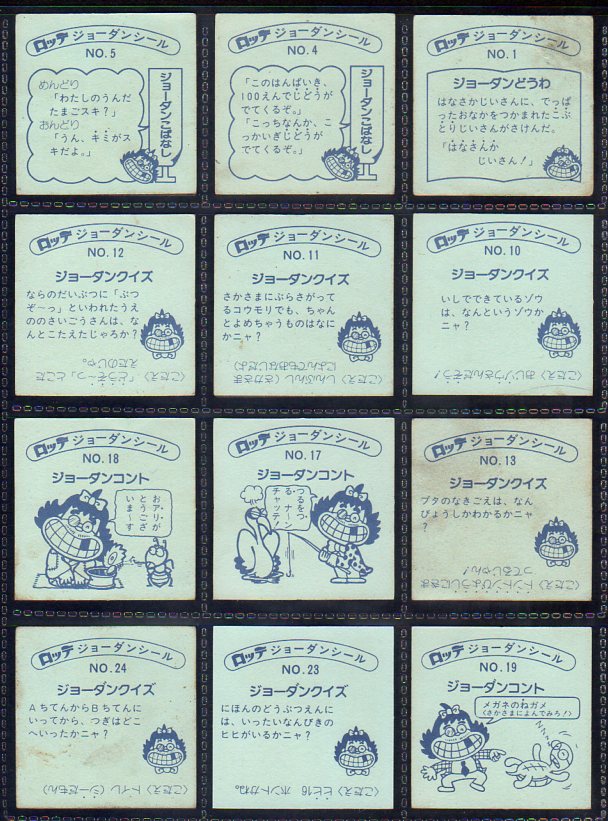 ロッテ ジョーダンシール
NO.5
ジョーダンこばなし
めんどり
「わたしのうんだ
たまごスキ？」
おんどり
「うん、キミがス
キだよ。」
ロッテ ジョーダンシール
NO.4
ジョーダンこばなし
「このはんばいき、
100えんでじどうが
でてくるぞ。」
「こっちなんか、こ
っかいぎじどうが
でてくるぞ。」
ロッテ ジョーダンシール
NO.1
ジョーダンどうわ
はなさかじいさんに、でっぱ
ったおなかをつかまれたこぶ
とりじいさんがさけんだ。
「はなさんか
じいさん！」
ロッテ ジョーダンシール
NO.12
ジョーダンクイズ
ならのだいぶつに「ぶつ
ぞ～っ」といわれたうえ
ののさいごうさんは、な
んとこたえたじゃろか？
〈こたえ〉「どぞ～っ」とこた
えたのじゃ。
ロッテ ジョーダンシール
NO.11
ジョーダンクイズ
さかさまにぶらさがって
るコウモリでも、ちゃん
とよめちゃうものはなに
かニャ？
〈こたえ〉しんぶんし（さかさま
によんでもおなじだよ）
ロッテ ジョーダンシール
NO.10
ジョーダンクイズ
いしでできているゾウ
は、なんというゾウか
ニャ？
〈こたえ〉おじゾウさんだぞう！
ロッテ ジョーダンシール
NO.18
ジョーダンコント
おアリが
とうござ
いま～す
ロッテ ジョーダンシール
NO.17
ジョーダンコント
つるをつ
る、ナーン
チャッテ
ロッテ ジョーダンシール
NO.13
ジョーダンクイズ
ブタのなきごえは、なん
びょうしかわかるかニャ
？
〈こたえ〉トントンびょうしにきま
ってるじゃん！
ロッテ ジョーダンシール
NO.24
ジョーダンクイズ
AちてんからBちてんに
いってから、つぎはどこ
へいったかニャ？
〈こたえ〉トイレ（シーだもん）
ロッテ ジョーダンシール
NO.23
ジョーダンクイズ
にほんのどうぶつえんに
は、いったいなんびきの
ヒヒがいるかニャ？
〈こたえ〉ヒヒ16 ホントかね。
ロッテ ジョーダンシール
NO.19
ジョーダンコント
メガネのねガメ
〈さかさまによんでみろ！〉